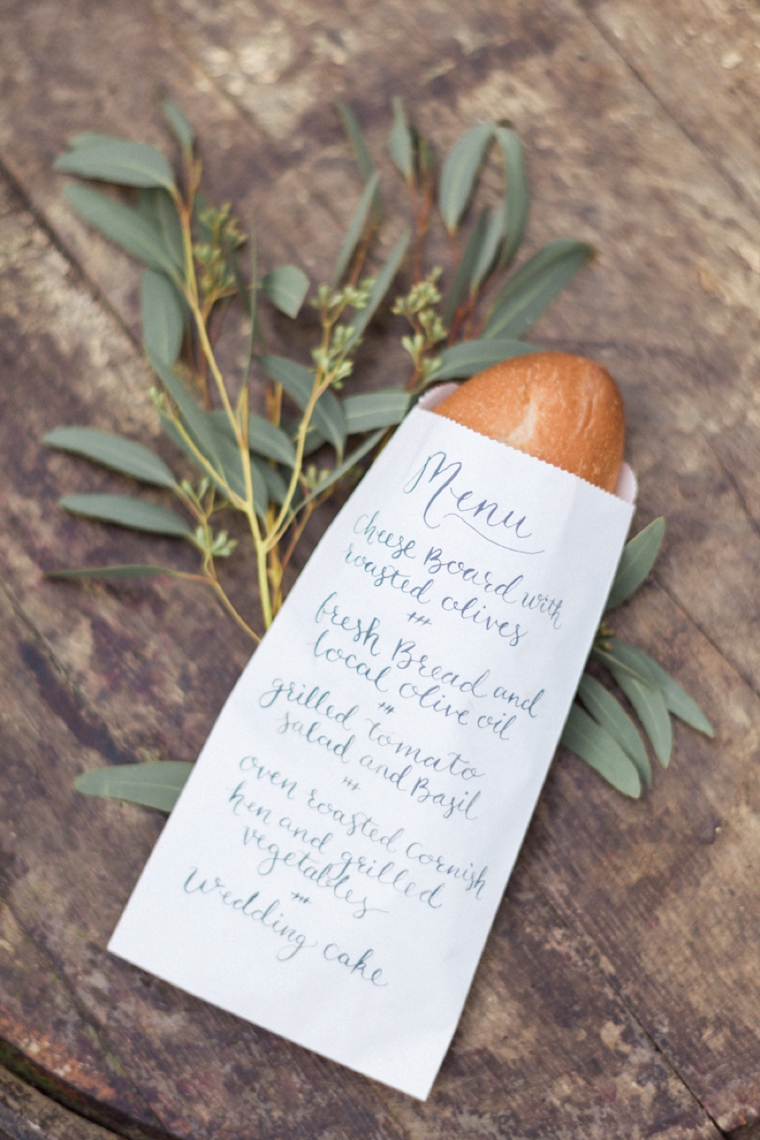 Menu
Cheese Board with
roasted olives
fresh Bread and
local olive oil
grilled tomato
salad and Basil
oven roasted Cornish
hen and grilled
vegetables
Wedding cake